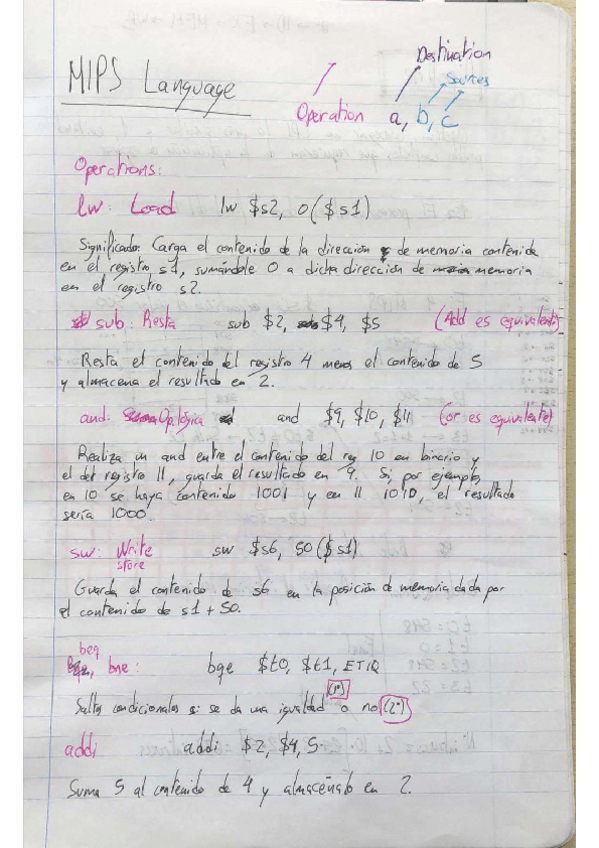 MIPS Language
Destination
Sources
Operation a, b, c
Operations:
lw: Load lw $s2, 0($s1)
Significado: Carga el contenido de la dirección de memoria contenida
en el registro s1, sumándole 0 a dicha dirección de memoria
en el registro s2.
sub: Resta sub $2, $4, $5 (Add es equivalente)
Resta el contenido del registro 4 menos el contenido de 5
y almacena el resultado en 2.
and: Op. lógica and $9, $10, $11 (or es equivalente)
Realiza un and entre el contenido del reg 10 en binario y
el del registro 11, guarda el resultado en 9. Si, por ejemplo,
en 10 se haya contenido 1001 y en 11 1010, el resultado
sería 1000.
sw: Write sw $s6, 50($s1)
store
Guarda el contenido de s6 en la posición de memoria dada por
el contenido de s1 + 50.
beq
bne: bge $t0, $t1, ETIQ
Saltos condicionales si se da una igualdad (1º) o no (2º)
addi addi $2, $4, 5
Suma 5 al contenido de 4 y almacénalo en 2.